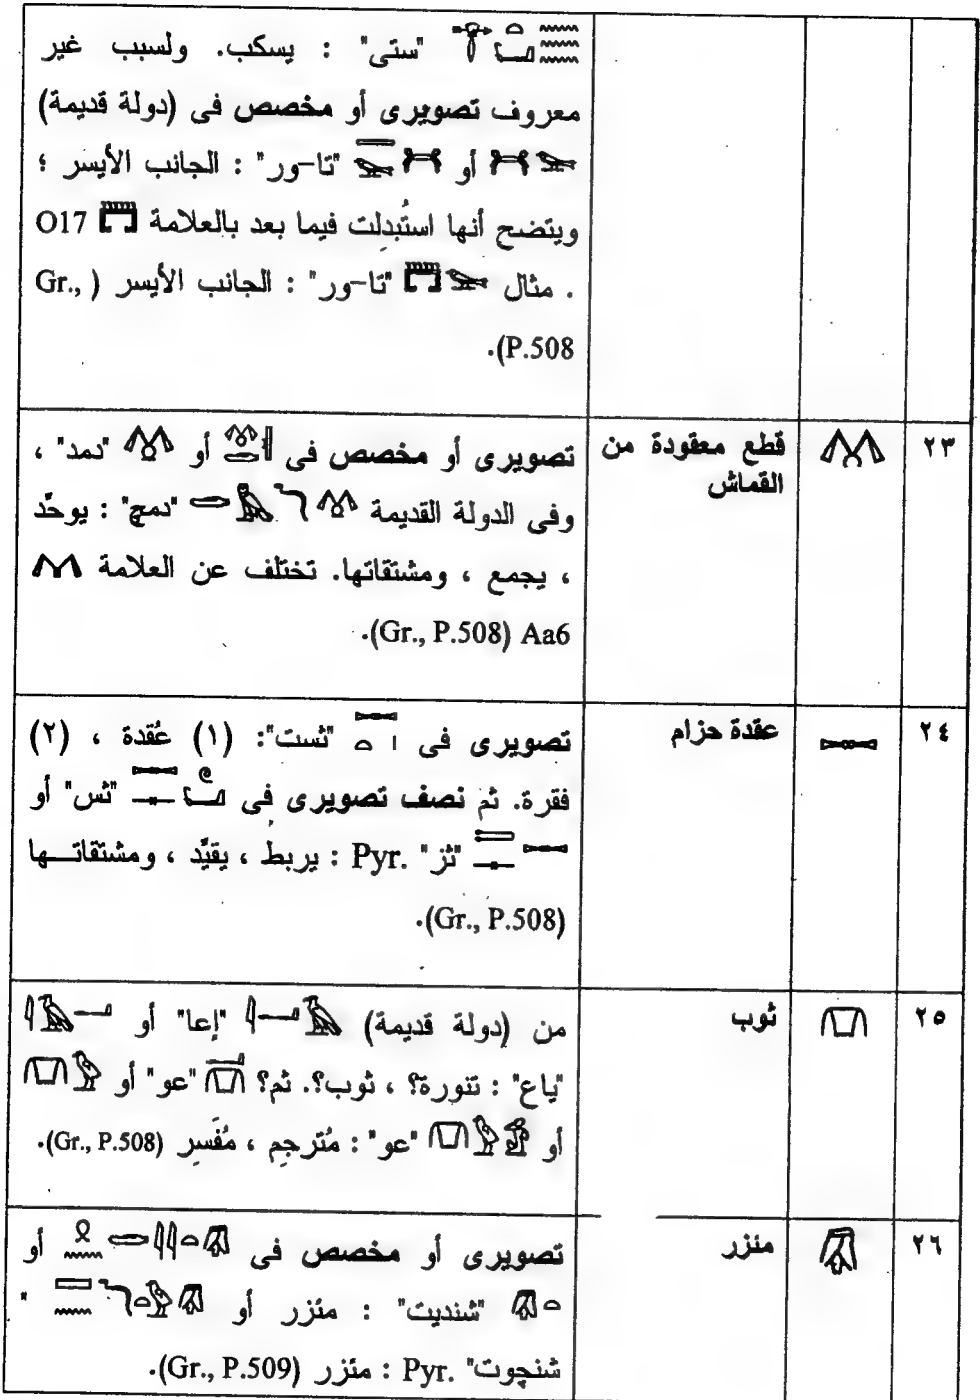 "ستى" : يسكب. ولسبب غير
معروف تصويرى أو مخصص فى (دولة قديمة)
أو "تا-ور" : الجانب الأيسر ؛
ويتضح أنها استُبدِلت فيما بعد بالعلامة O17
. مثال "تا-ور" : الجانب الأيسر (Gr.,
P.508).
٢٣
قطع معقودة من
القماش
تصويرى أو مخصص فى أو "دمد" ،
وفى الدولة القديمة "دمچ" : يوحِّد
، يجمع ، ومشتقاتها. تختلف عن العلامة
Aa6 (Gr., P.508).
٢٤
عقدة حزام
تصويرى فى "ثست": (١) عُقدة ، (٢)
فقرة. ثم نصف تصويرى فى "ثس" أو
"ثز" Pyr. : يربط ، يقيِّد ، ومشتقاتها
(Gr., P.508).
٢٥
ثوب
من (دولة قديمة) "إعا" أو
"ياع" : تنورة؟ ، ثوب؟. ثم؟ "عو" أو
أو "عو" : مُترجِم ، مُفَسِر (Gr., P.508).
٢٦
مئزر
تصويرى أو مخصص فى أو
"شنديت" : مئزر أو "
شنچوت" Pyr. : مئزر (Gr., P.509).